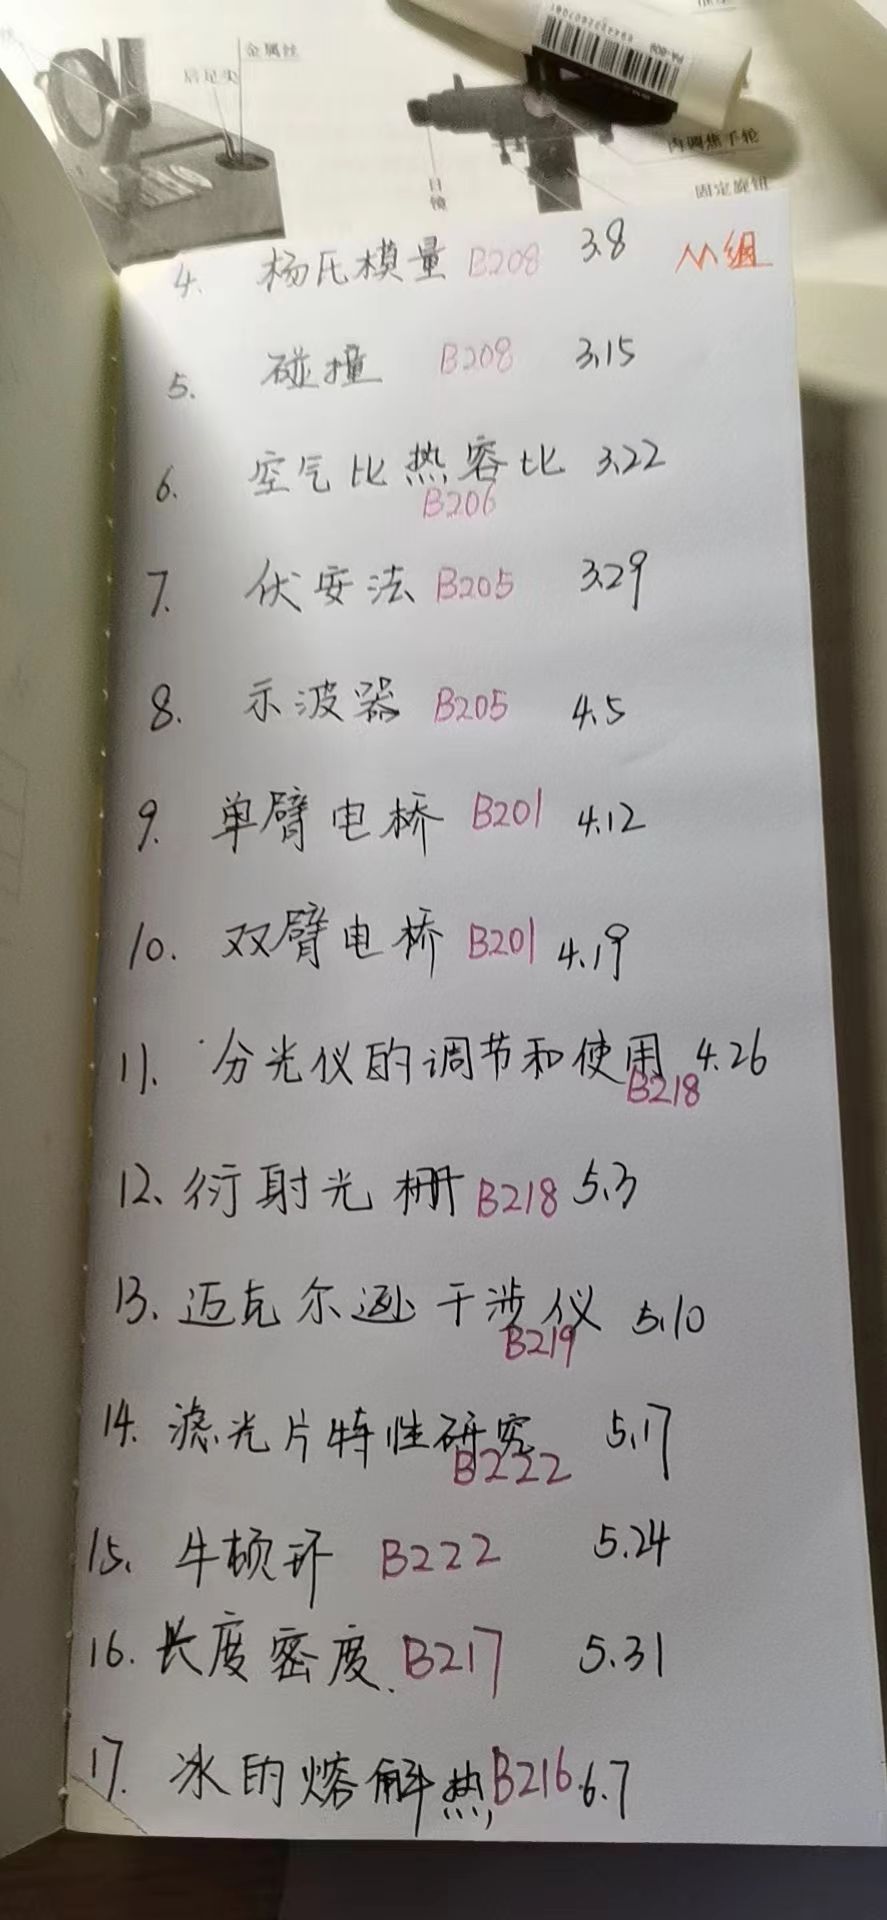 金属丝
后足尖
目镜
内调焦手轮
固定旋钮
4. 杨氏模量 B208 3.8
组
5. 碰撞 B208 3.15
6. 空气比热容比 3.22
B206
7. 伏安法 B205 3.29
8. 示波器 B205 4.5
9. 单臂电桥 B201 4.12
10. 双臂电桥 B201 4.19
11. 分光仪的调节和使用 4.26
B218
12. 衍射光栅 B218 5.3
13. 迈克尔逊干涉仪 5.10
B219
14. 滤光片特性研究 5.17
B222
15. 牛顿环 B222 5.24
16. 长度密度. B217 5.31
17. 冰的熔解热, B216 6.7